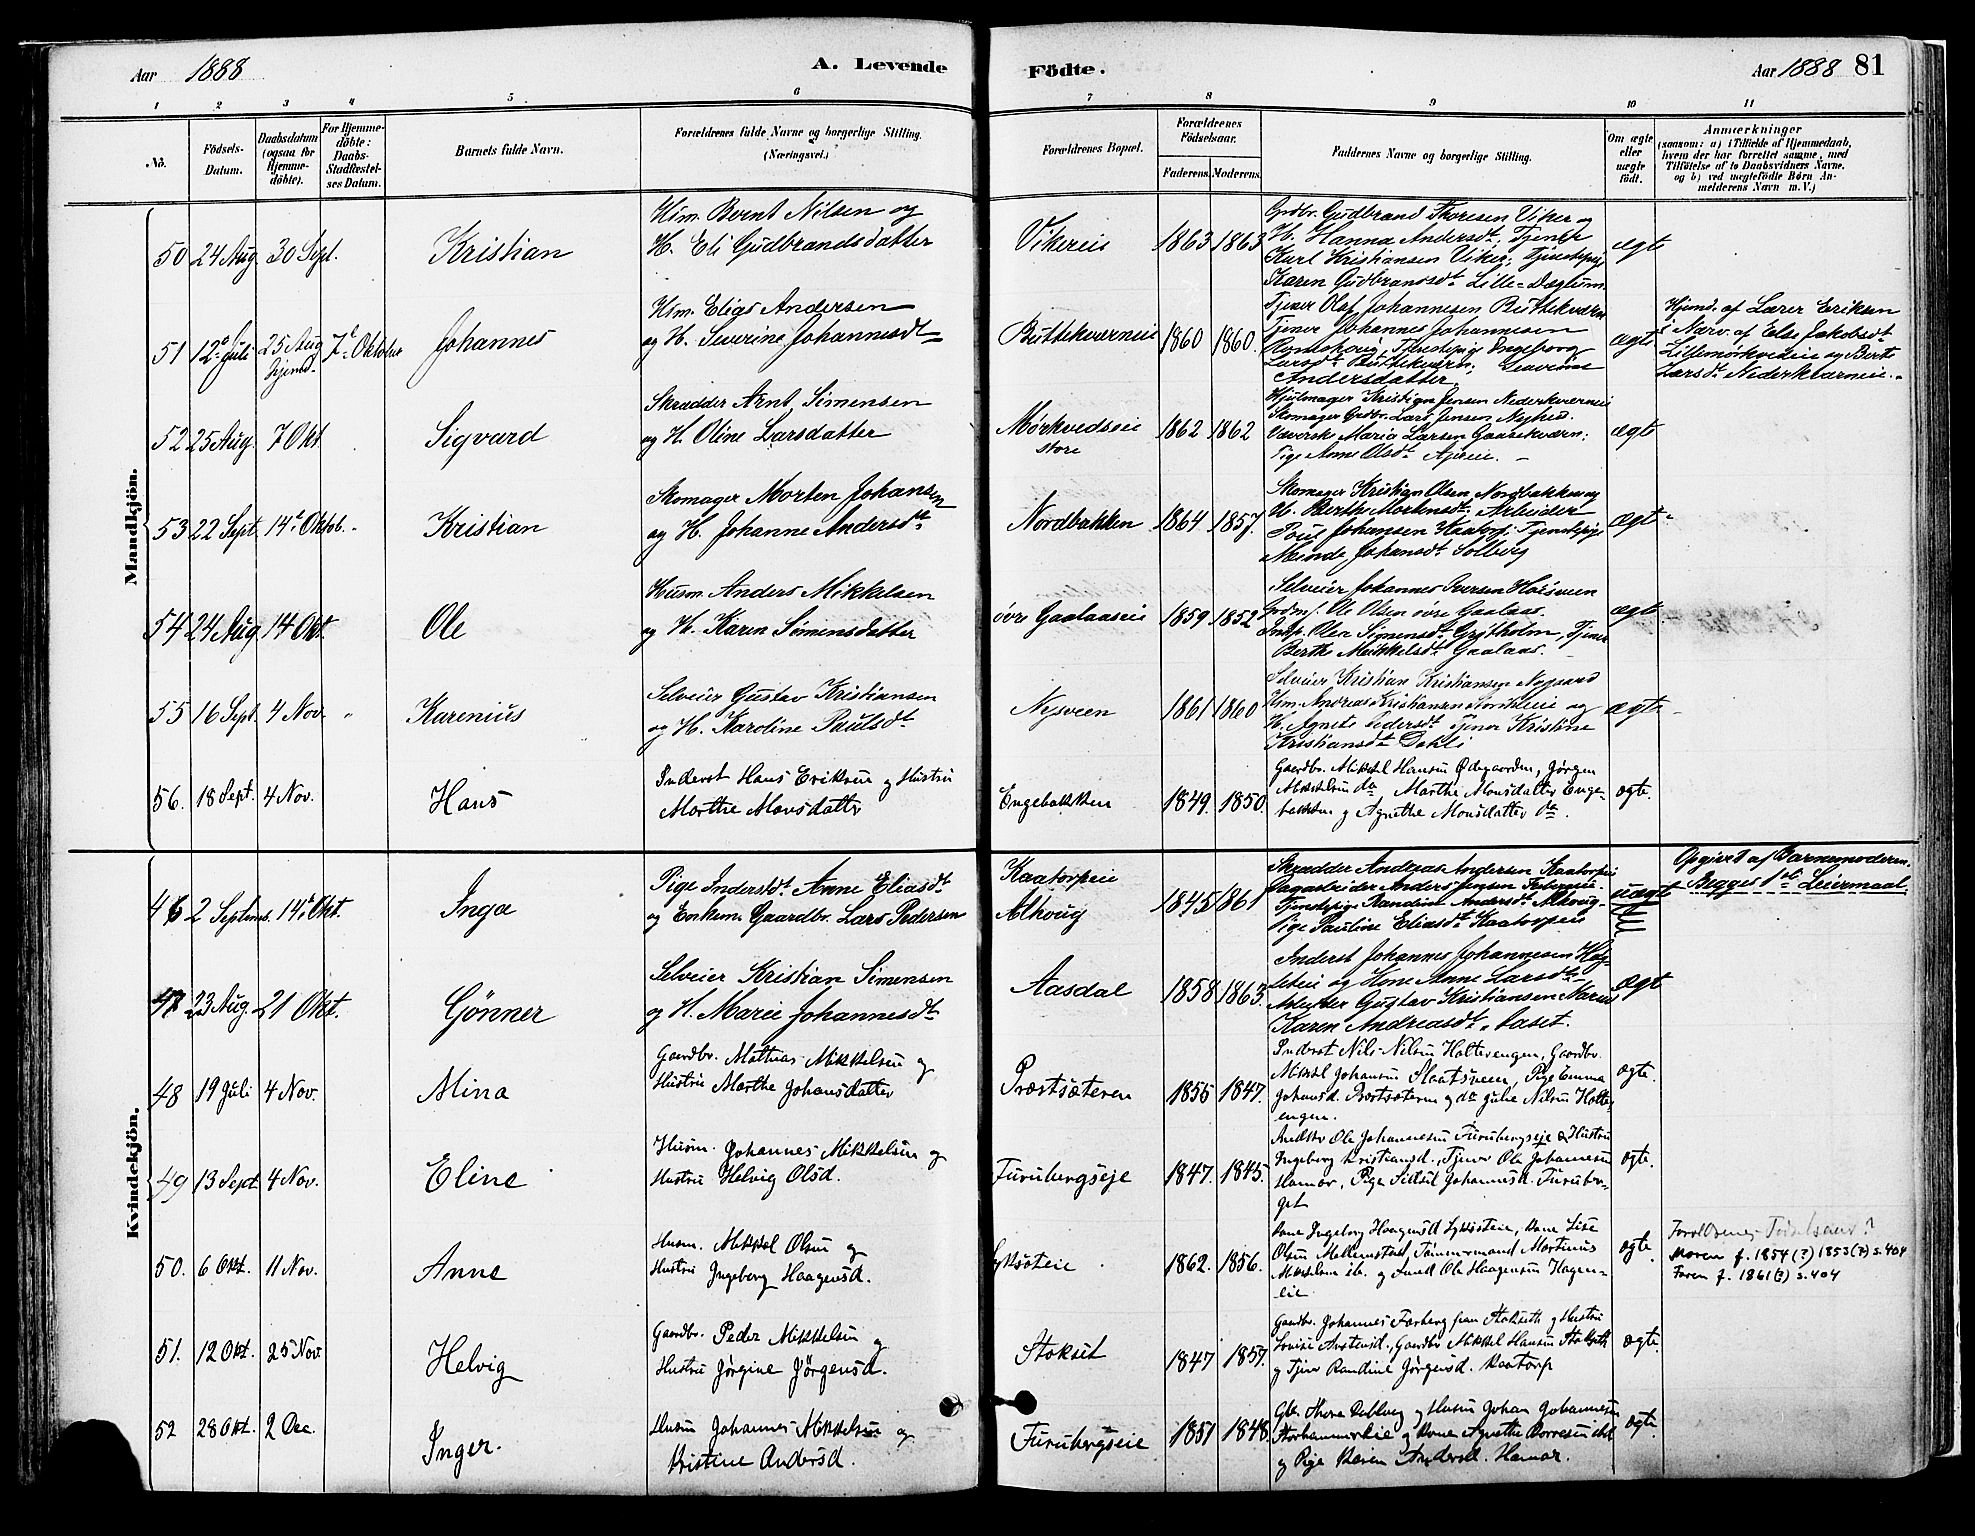 Aar 1888
A. Levende
Födte.
Aar 1888 81
1 2 3 4 5 6 7 8 9 10 11
No.
Födsels-
Datum.
Daabsdatum
(ogsaa for
Hjemme-
döbte).
For Hjemme-
döbte:
Daabs-
Stadfæstel-
ses Datum.
Barnets fulde Navn.
Forældrenes fulde Navne og borgerlige Stilling.
(Næringsvei.)
Forældrenes Bopæl.
Forældrenes
Födselsaar.
Faderens. Moderens.
Faddernes Navne og borgerlige Stilling.
Om ægte
eller
uægte
födt.
Anmærkninger
(saasom: a) i Tilfælde af Hjemmedaab,
hvem der har forrettet samme, med
Tilföielse af to Daabsvidners Navne,
og b) ved uægtefödte Börn An-
melderens Navn m. V.)
Mandkjön.
50 24 Aug. 30 Sept.
Kristian
Hsm. Bernt Nilsen og
H. Eli Gudbrandsdatter
Vikereie
1863 1863
Grdbr. Gudbrand Thoresen Viker og
H. Hanna Andersdt, Tjener
Karl Kristiansen Viker, Tjenstepig
Karen Gudbrandsdt Lille-Dæglum
ægte
51 12te Juli 25 Aug hjemd. 7de Oktober
Johannes
Hsm. Elias Andersen
og H. Severine Johannesdt
Buttekværneie
1860 1860.
Tjener Olaf Johannesen Buttekværn
Tjener Johannes Johannesen
Tjenstepige Ingeborg
Larsdt Buttekværn, Severine
Andersdatter
ægte
Hjemd. af Lærer Eriksen
i Nærv. af Else Jakobsdt
Lillemörkvedeie og Berte
Larsdt Nederkværneie.
52 25 Aug. 7 Okt
Sigvard
Skrædder Arnt Simensen
og H. Oline Larsdatter
Mörkvedseie
store
1862 1862
Hjulmager Kristian Jensen Nederkværneie
Skomager Grdbr. Lars Jensen Nyhus.
Væverske Maria Larsen Gaasekværn:
Pige Anne Olsdt
ægte
53 22 Sept. 14de Oktob.
Kristian
Skomager Morten Johansen
og H. Johanne Andersdt
Nordbakken
1864 1857.
Skomager Kristian Olsen Nordbakken og
H. Berthe Mortensdt; Arbeider
Poul Johansen Kaatorp; Tjenstepige
Johansdt Solberg
ægte
54 24 Aug 14 Okt.
Ole
Husm. Anders Mikkelsen
og H. Karen Simensdatter
övre Gaalaaseie
1859 1852
Selveier Johannes Iversen Höisveen
Grdmf. Ole Olsen övre Gaalaas.
Indp. Olea Simensdt Grötholm, Tjener
Berthe Mikkelsdt Gaalaas.
ægte
55 16 Sept. 4 Nov.
Karenius
Selveier Gustav Kristiansen
og H. Karoline Paulsdt
Nysveen
1861 1860
Selveier Kristian Kristiansen Nygaard
Hsm. Andreas Kristiansen og
H. Agnete Pedersdt Tjener Kristine
Kristiansdt Dahli
ægte
56. 18 Sept. 4 Nov.
Hans
Inderst Hans Eriksen og Hustru
Marthe Monsdatter
Engebakken
1849. 1850.
Gaardbr. Mikkel Hansen Ödegaarden, Jörgen
Mikkelsen do Marthe Monsdatter Enge-
bakken og Agnethe Monsdatter do.
ægte.
Kvindekjön.
46 2 Septemb. 14de Okt.
Inga
Pige Inderstdt Anne Eliasdt
og Enkem. Gaardbr. Lars Pedersen
Kaatorpeie
Alhoug
1845 1861
Skrædder Andreas Andersen Kaatorpeie
Anders Jensen
Tjenstepige Randine Andersdt Alhoug
Pige Pauline Eliasdt Kaatorpeie
uægte
Opgivet af Barnemoderen.
Begges 1ste Leiermaal.
47 23 Aug. 21 Okt.
Gönner
Selveier Kristian Simensen
og H. Marie Johannesdt
Aasdal
1858 1863.
Inderst Johannes Johannesen
og Kone Anne Larsdt
Arbeider Gustav Kristiansen
Karen Andreasdt Aaset.
Ægt
48 19 Juli 4 Nov.
Mina
Gaardbr. Mathias Mikkelsen og
Hustru Marthe Johansdatter
Præstsæteren
1855 1847.
Inderst Nils Nilsen Holtevengen, Gaardbr.
Mikkel Johansen Slaatsveen, Pige Emma
Johansd. Præstsæteren og do Julie Nilsen Holte-
engen.
ægte.
49 13 Sept. 4 Nov.
Eline
Husm. Johannes Mikkelsen og
Hustru Helvig Olsd.
Furubergseje
1847. 1845.
Ole Johannesen Furubergseje & Hustru
Ingeborg Kristiansd., Tjener Ole Johannesen
Hamar, Pige Sidsel Johannesd. Furuber-
get
ægte.
50. 6 Okt. 11 Nov.
Anne
Husm. Mikkel Olsen og
Hustru Ingeborg Haagensd.
Lyksæteie
1862. 1856.
Kone Ingeborg Haagensd Lyksæteie, Kone Lise
Olsen Mellumstad, Tømmermand Martinus
Mikkelsen ib. og Ole Haagensen Hagen-
eie
ægte.
Forældrenes Födselsaar?
Moren f. 1854 (?) 1853(?) s. 404
Faren f. 1861(?) s. 404
51. 12 Okt. 25 Nov.
Helvig
Gaardbr. Peder Mikkelsen og
Hustru Jörgine Jörgensd.
Stokset
1847 1857.
Gaardbr. Johannes Farberg fra Stokseth og Hustru
Lovise, Gaardbr Mikkel Hansen Stokseth
og Tjener Randine Jörgensd. Kaatorp
ægte.
52 28 Okt. 2 Dec.
Inger.
Husm Johannes Mikkelsen og
Kristine Andersd.
Furubergseie
1851 1848
Gbr. Thore Dellberg og Husm Johan Johannesen
Storhammerseie og Kone Agnethe Borresen ibd
og Pige Karen Andersd. Hamar.
ægte.